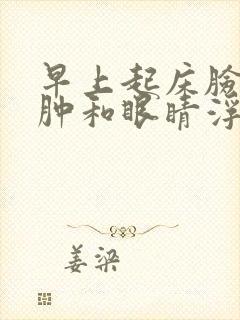 早上起床脸
肿和眼睛浮
姜梁